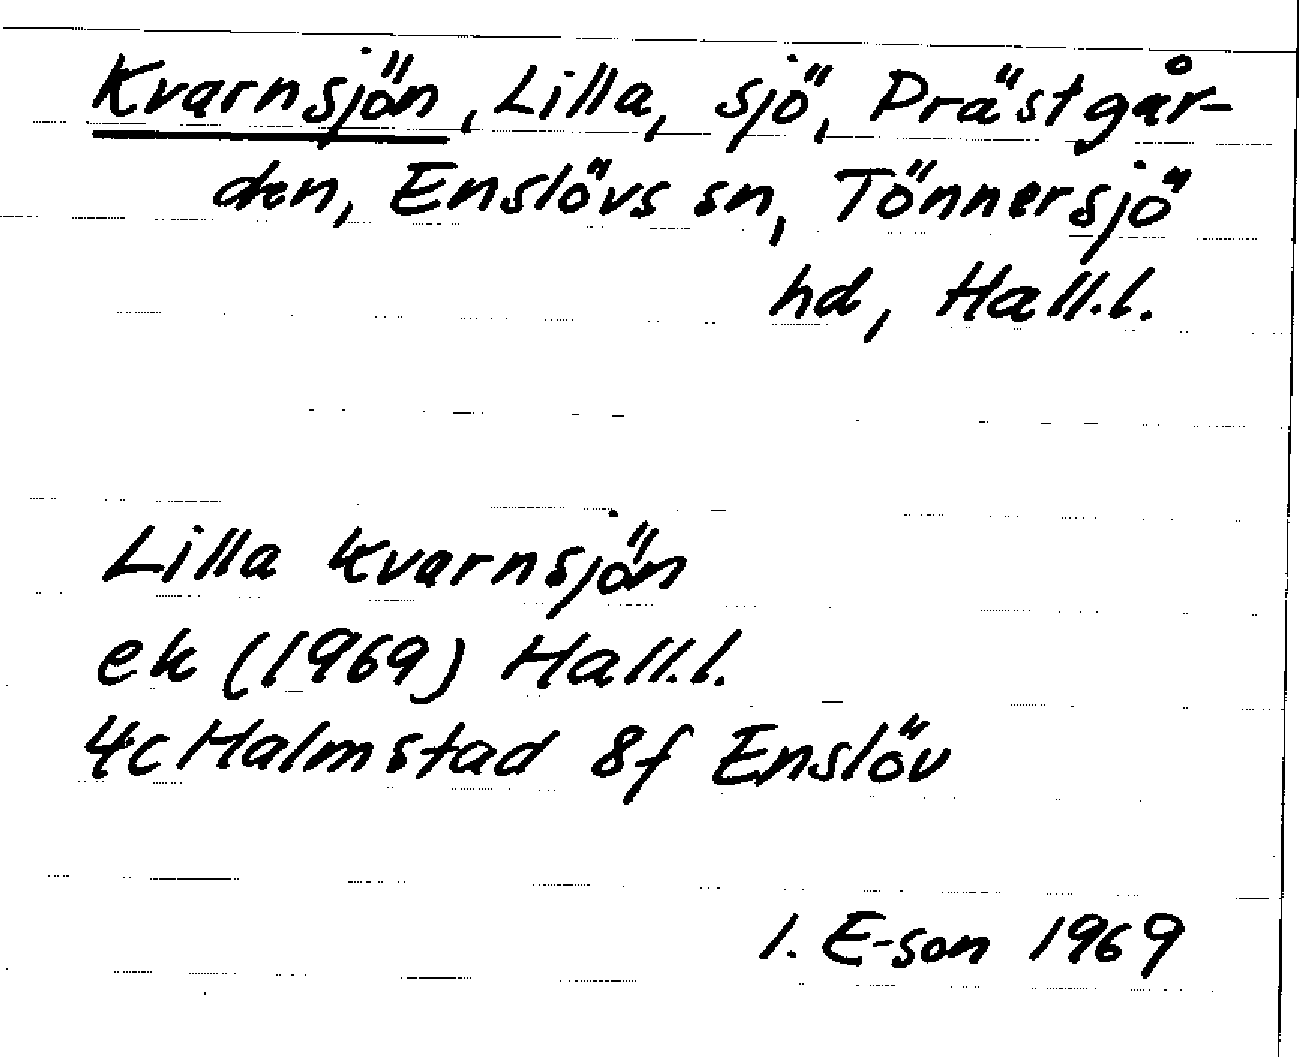 Kvarnsjön, Lilla, sjö, Prästgår-
den, Enslövs sn, Tönnersjö
hd, Hall.l.
Lilla Kvarnsjön
ek (1969) Hall.l.
4c Halmstad 8f Enslöv
I. E-son 1969